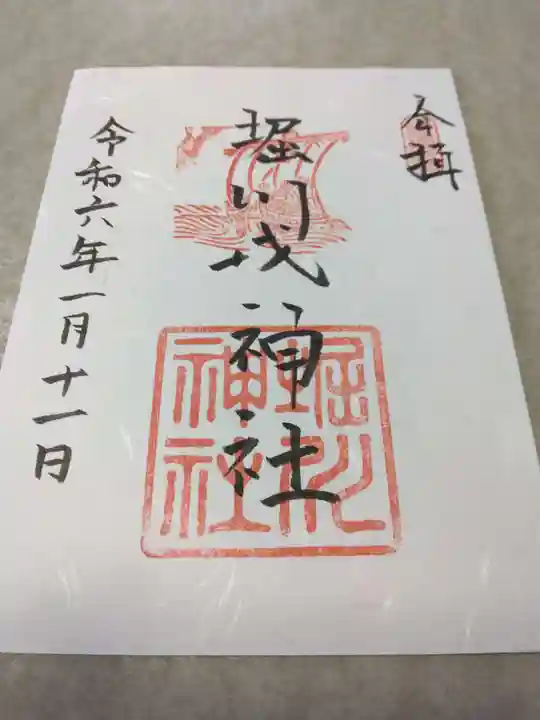 奉拝
堀川戎神社
堀川
神社
令和六年一月十一日